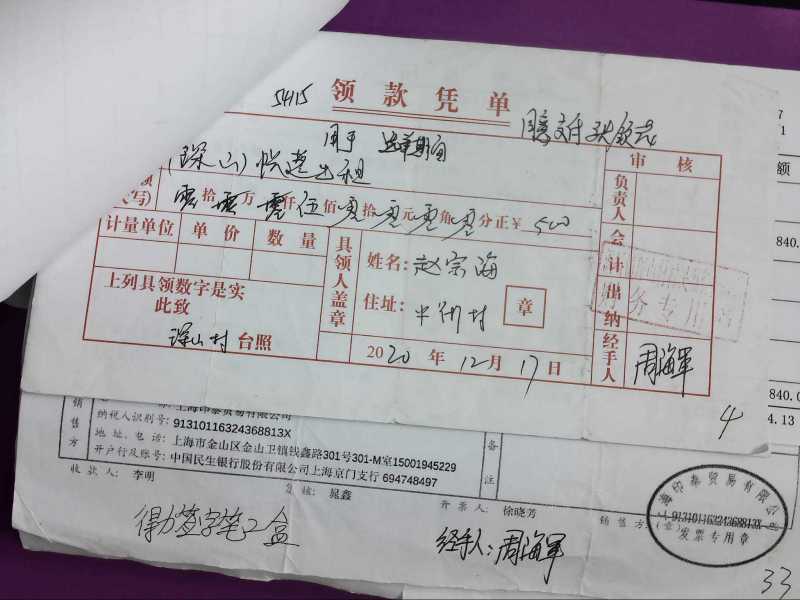 5415 领款凭单
用于 选举期间
(琛山)帐篷出租
写) 零拾零万零仟伍佰零拾零元零角零分正¥ 500
审核
负责人
会计
出纳
经手人 周海军
计量单位 单价 数量
具领人盖章
姓名: 赵宗海
住址:
章
上列具领数字是实
此致
琛山村 台照
2020年12月17日
务专用
4
额
840.
840.0
4.13
销售方
上海印泰贸易有限公司
纳税人识别号: 91310116324368813X
地址、电话: 上海市金山区金山卫镇钱鑫路301号301-M室15001945229
开户行及账号: 中国民生银行股份有限公司上海京门支行 694748497
备注
收款人: 李明
复核: 晁鑫
开票人: 徐晓芳
销售方:(章)
上海印泰贸易有限公司
91310116324368813X
发票专用章
得力签字笔2盒
经手人:周海军
33